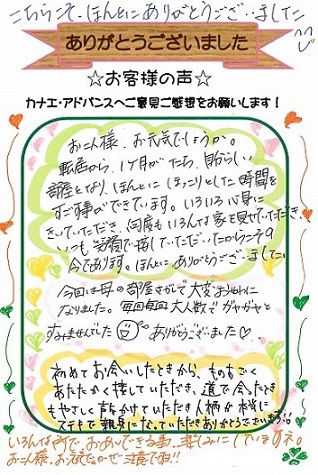 こちらこそ、ほんとにありがとうございました
ありがとうございました
☆お客様の声☆
カナエ・アドバンスへご意見ご感想をお願いします！
お二人様、お元気でしょうか。
転居から、1ケ月がたち、自分らしい
部屋となり、ほんとに ほっこりとした時間を
すご す事ができています。いろいろ心身に
きいていただき、何度もいろんな家を見せていただき、
いつも 笑顔で接していただいたからこその
今であります。ほんとに ありがとうございました。
今回は母の部屋さがしで大変おせわに
なりました。毎回毎回大人数でガヤガヤと
すみませんでした ありがとうございました♡
初めてお会いしたときから、ものすごく
あたたかく接していただき、道で会ったとき
もやさしく声をかけていただき人柄が本当に
ステキで親身になっていただきありがとうございます!!
いろんな所で、お会いできる事、楽しみにしていますネ。
お二人様、お元気で